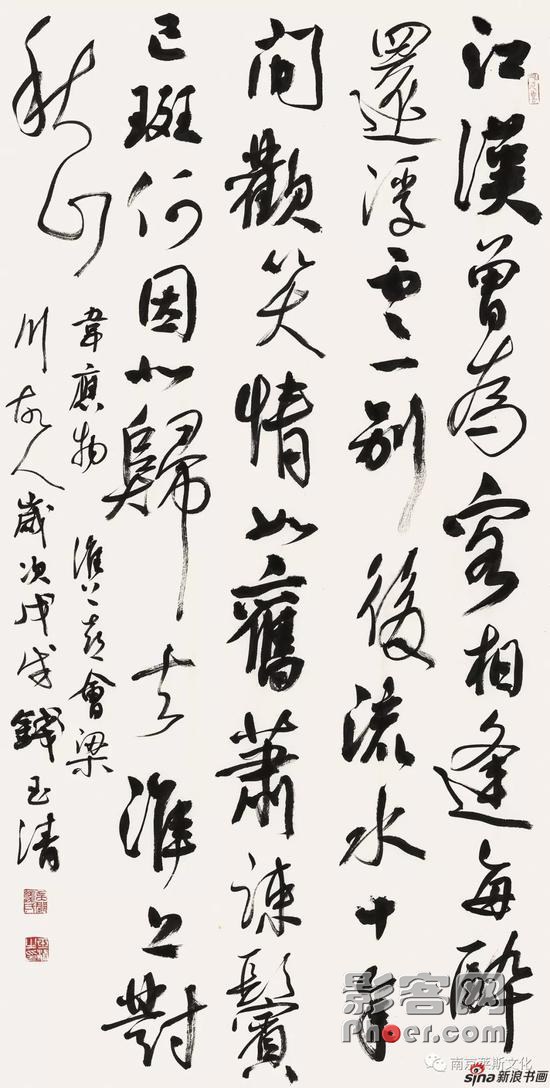 江漢曾為客相逢每醉
還浮雲一別後流水十年
間歡笑情如舊蕭疎鬢
已斑何因北歸去淮上對
秋山
韋應物淮上喜會梁
川故人歲次戊戌錢玉清
影客网
Phoer.com
南京莱斯文化
sina新浪书画